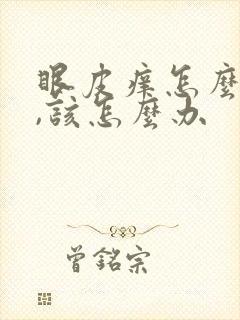 眼皮痒怎麼
,該怎麼办
曾銘宗